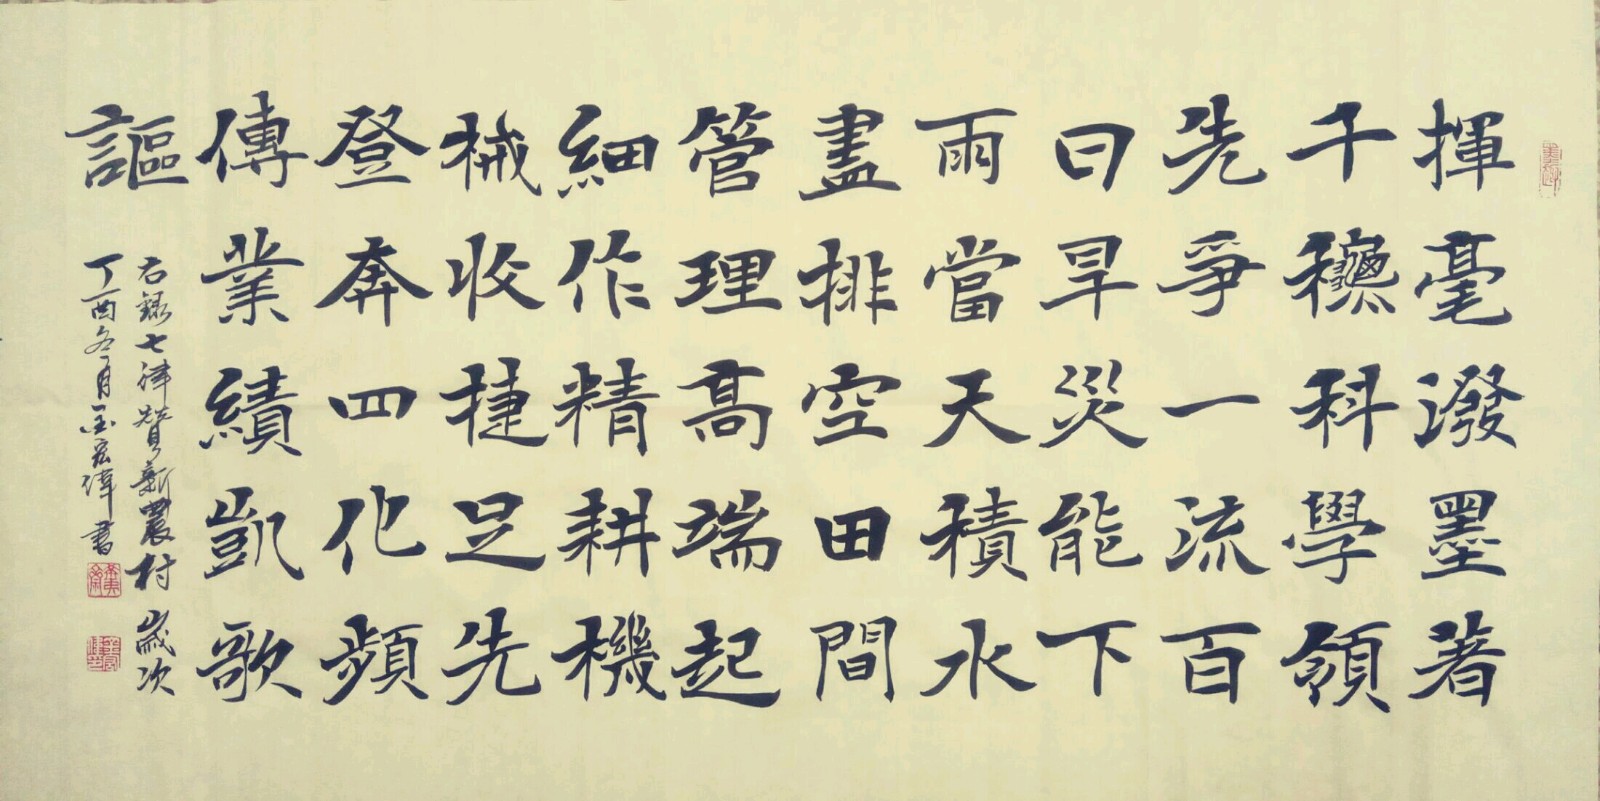 揮毫潑墨著
千穐科學領
先爭一流百
日旱災能下
雨當天積水
盡排空田間
管理高端起
細作精耕機
械收捷足先
登奔四化頻
傳業績凱歌
謳
右錄七律贊新農村歲次
丁酉冬月
書